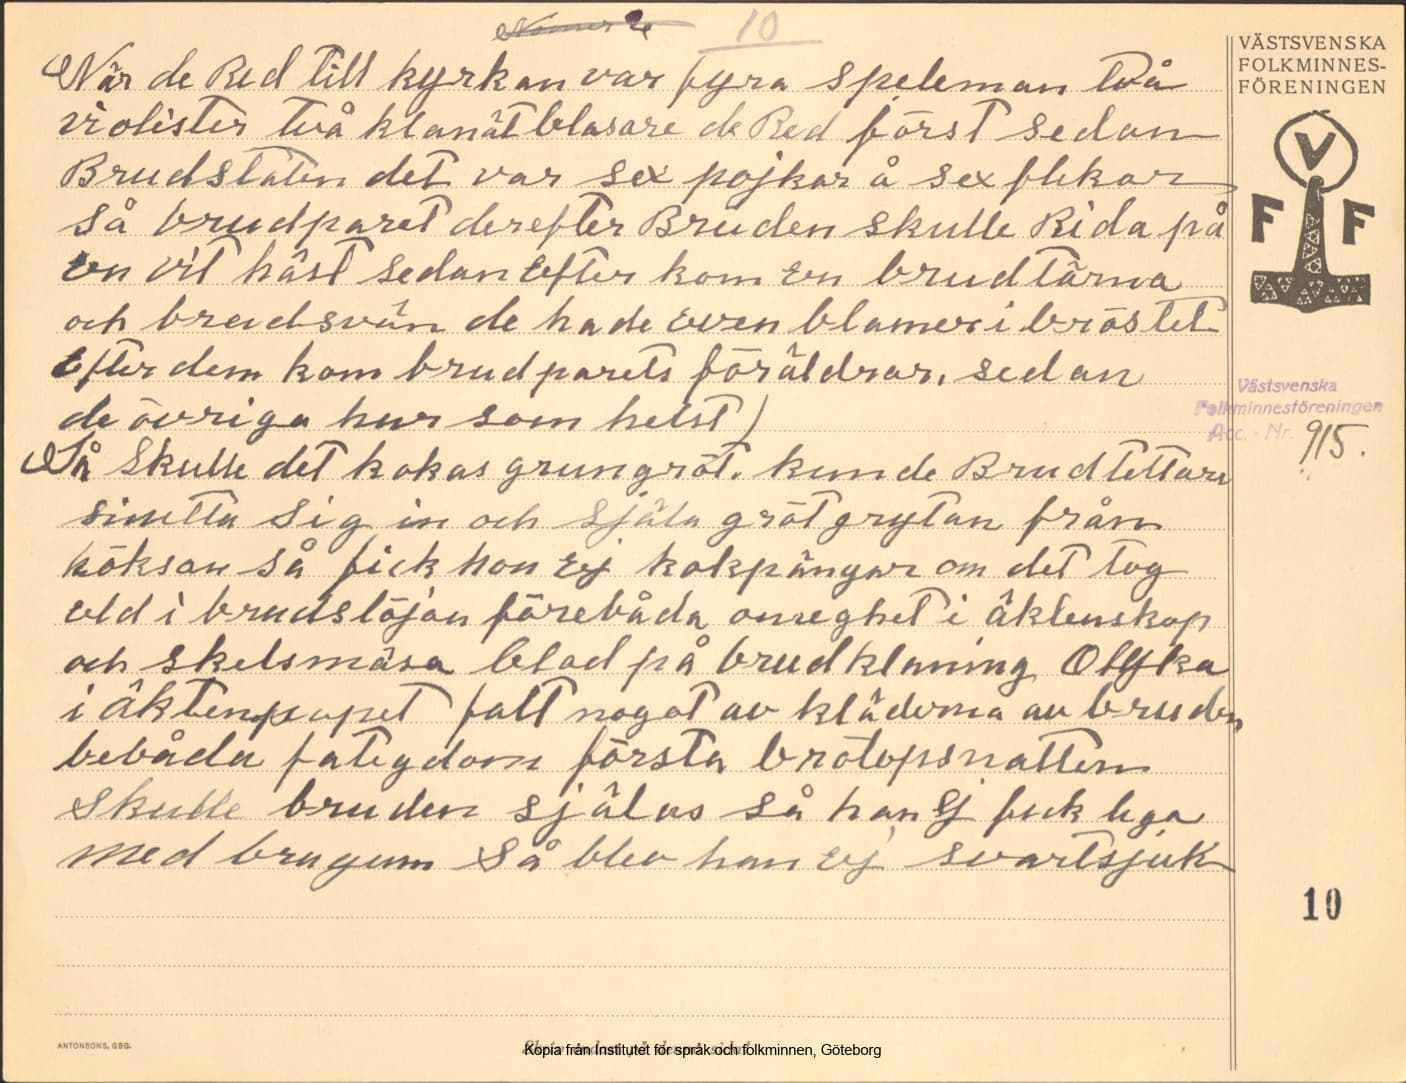 10
När de Red till kyrkan var fyra speleman två
violister två klanätblasare de Red först sedan
Brudstäten det var sex pojkar å sex flikor
så brudparet derefter Bruden skulle Rida på
en vit häst sedan efter kom en brudtärna
och brudsvän de hade even blomer i bröstet
efter dem kom brudparets föräldrar, sedan
de övriga hur som helst)
Så skulle det kokas grungröt. kunde Brudtettare
smetta sig in och själa grötgrytan från
köksan så fick hon ej kokpängar om det tog
eld i brudslöjan förebåda oneghet i äktenskap
och skelsmäsa blod på brudklaning Olyka
i äktenpapet fatt nogot av kläderna av bruden
bebåda fategdom första brötopsnatten
skulle bruden sjålas så han ej fick liga
med brugum så blev han ej svartsjuk
VÄSTSVENSKA
FOLKMINNES-
FÖRENINGEN
V
F F
Västsvenska
Folkminnesföreningen
Acc. - Nr. 915.
10
ANTONSONS, GBG.
Kopia från Institutet för språk och folkminnen, Göteborg